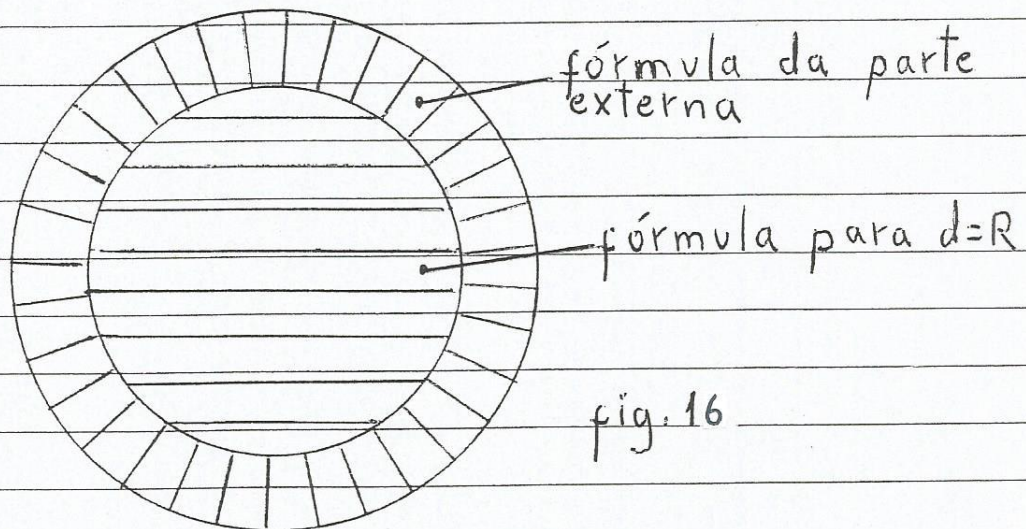 fórmula da parte
externa
fórmula para d=R
fig. 16